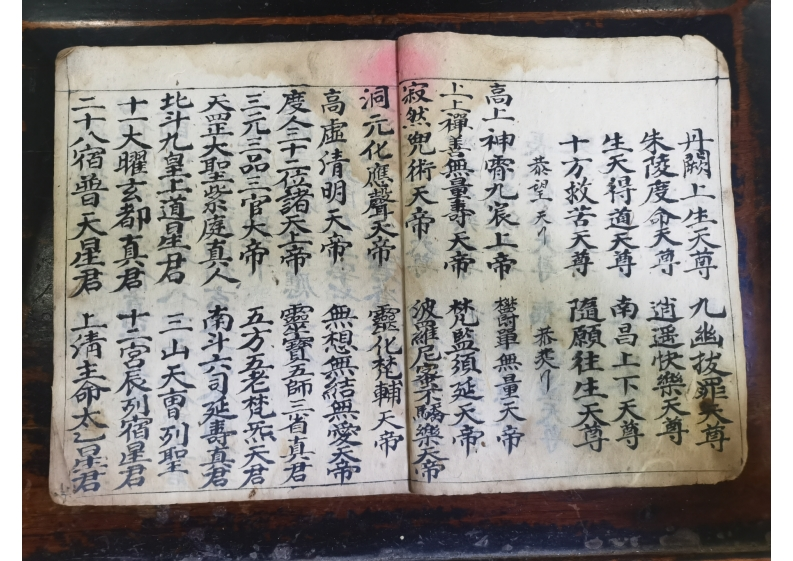 丹闕上生天尊 九幽拔罪天尊
朱陵度命天尊 逍遥快樂天尊
生天得道天尊 南昌上下天尊
十方救苦天尊 隨願往生天尊
恭望天 恭炗
高上神霄九宸上帝 欝單無量天帝
上上禪善無量壽天帝 梵監須延天帝
寂然兜術天帝 波羅尼蜜不驕樂天帝
洞元化應聲天帝 靈化梵輔天帝
高虛清明天帝 無想無結無愛天帝
度人三十二位諸天上帝 靈寶五師三省真君
三元三品三官大帝 五方五老梵炁天君
天罡大聖紫庭真人 南斗六司延壽真君
北斗九皇上道星君 三山天曺列聖
十一大曜玄都真君 十二宮辰列宿星君
二十八宿普天星君 上清主命太乙星君